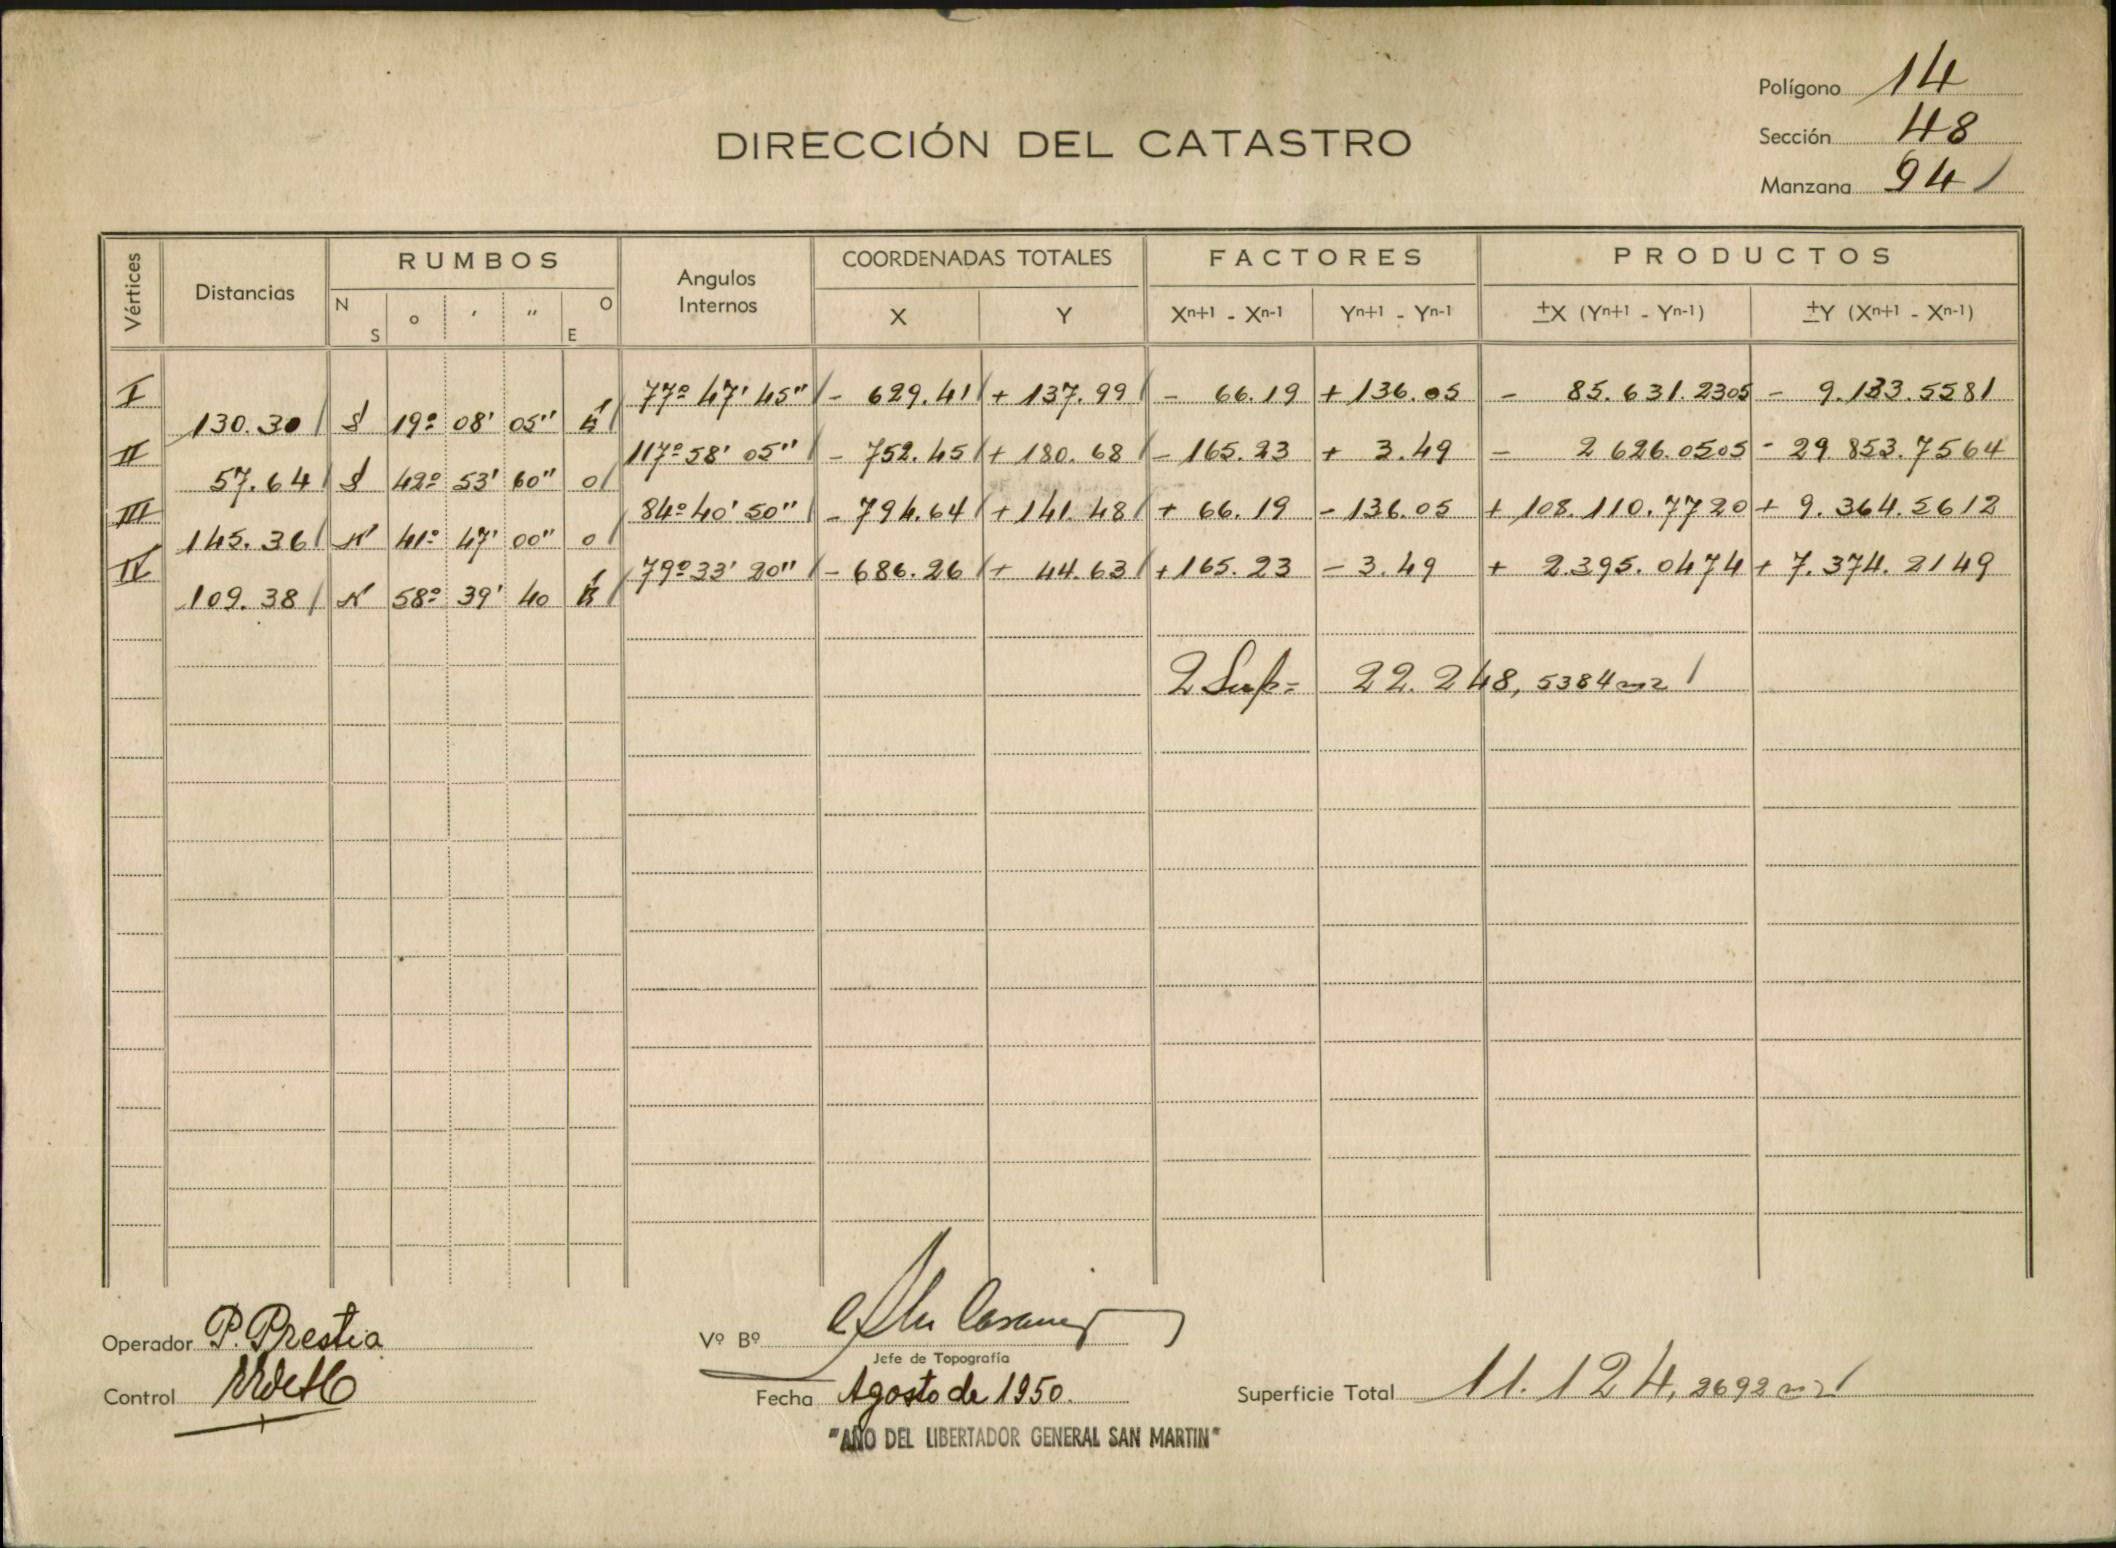 Polígono 14
DIRECCIÓN DEL CATASTRO
Sección 48
Manzana 94
Vértices Distancias RUMBOS Angulos Internos COORDENADAS TOTALES FACTORES PRODUCTOS
N S o ′ ″ O E X Y Xn+1 - Xn-1 Yn+1 - Yn-1 ±X (Yn+1 - Yn-1) ±Y (Xn+1 - Xn-1)
I 77º 47' 45" - 629.41 + 137.99 - 66.19 + 136.05 - 85.631.2305 - 9.133.5581
130.30 S 19º 08' 05" E
II 117º 58' 05" - 752.45 + 180.68 - 165.23 + 3.49 - 2 626.0505 - 29 853.7564
57.64 S 42º 53' 60" O
III 84º 40' 50" - 794.64 + 141.48 + 66.19 - 136.05 + 108.110.7720 + 9.364.5612
145.36 N 41º 47' 00" O
IV 79º 33' 20" - 686.26 + 44.63 + 165.23 - 3.49 + 2.395.0474 + 7.374.2149
109.38 N 58º 39' 40 E
2 Sup= 22.248,5384 m2
Operador P. Prestia
Vº Bº
Jefe de Topografía
Control
Fecha Agosto de 1950.
Superficie Total 11.124,2692 m2
"AÑO DEL LIBERTADOR GENERAL SAN MARTIN"